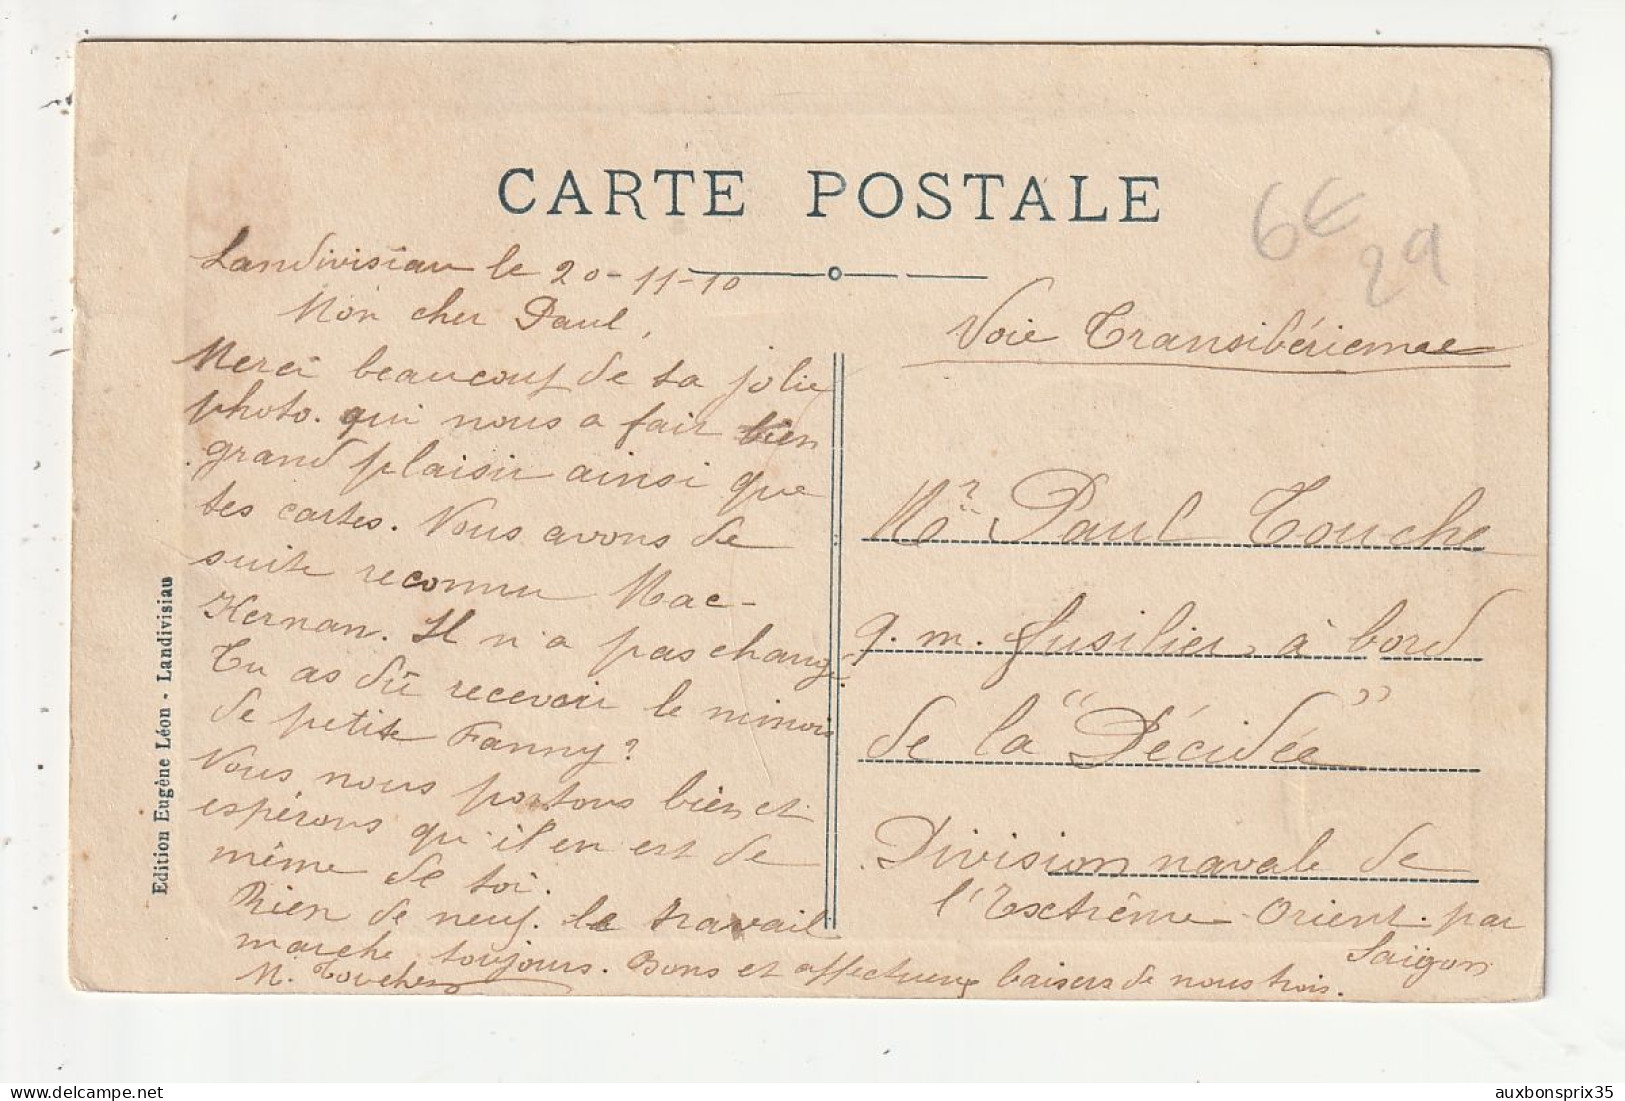 CARTE POSTALE
6€
29
Landivisiau le 20-11-10
Mon cher Paul,
Merci beaucoup de ta jolie
photo. qui nous a fait bien
grand plaisir ainsi que
tes cartes. Nous avons de
suite reconnu Mac-
Kernan. Il n'a pas changé.
Tu as dû recevoir le minois
de petite Fanny?
Nous nous portons bien et
espérons qu'il en est de
même de toi.
Rien de neuf. le travail
marche toujours. Bons et affectueux baisers de nous trois.
M. Touche
Voie Transibérienne
Mr Paul Touche
q. m. fusilier, à bord
de la "Décidée"
Division navale de
l'Extrême-Orient. par
Saïgon
Edition Eugène Léon - Landivisiau
auxbonsprix35